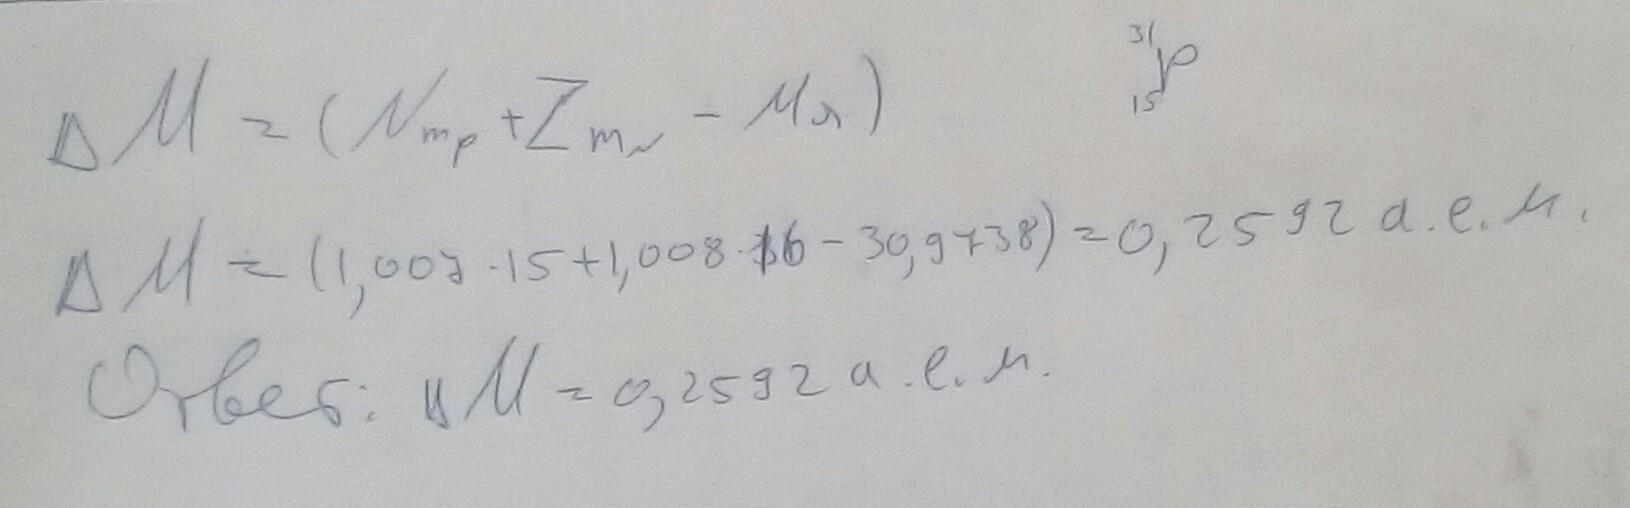 ΔM = (Nmp + Zmn - Mя) ³¹₁₅P
ΔM = (1,007 · 15 + 1,008 · 16 - 30,9738) = 0,2592 а.е.м.
Ответ: ΔM = 0,2592 а.е.м.